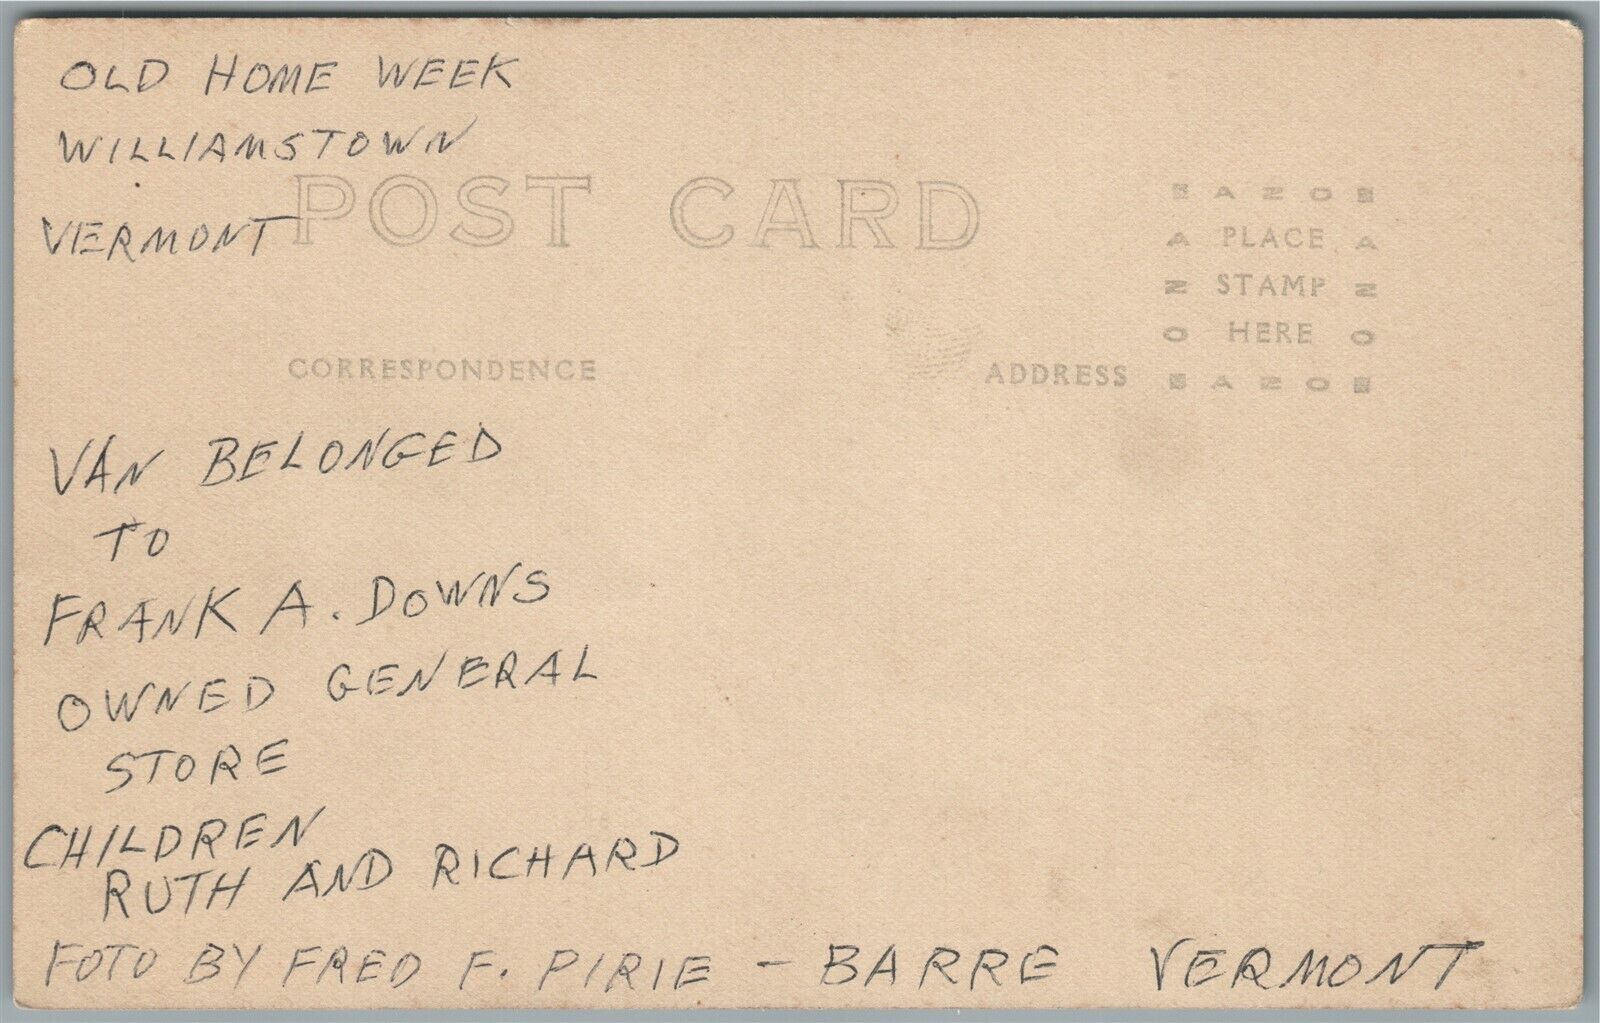 OLD HOME WEEK
WILLIAMSTOWN
VERMONT
POST CARD
CORRESPONDENCE
ADDRESS
E A Z O E
A PLACE A
Z STAMP Z
O HERE O
E A Z O E
VAN BELONGED
TO
FRANK A. DOWNS
OWNED GENERAL
STORE
CHILDREN
RUTH AND RICHARD
FOTO BY FRED F. PIRIE - BARRE VERMONT